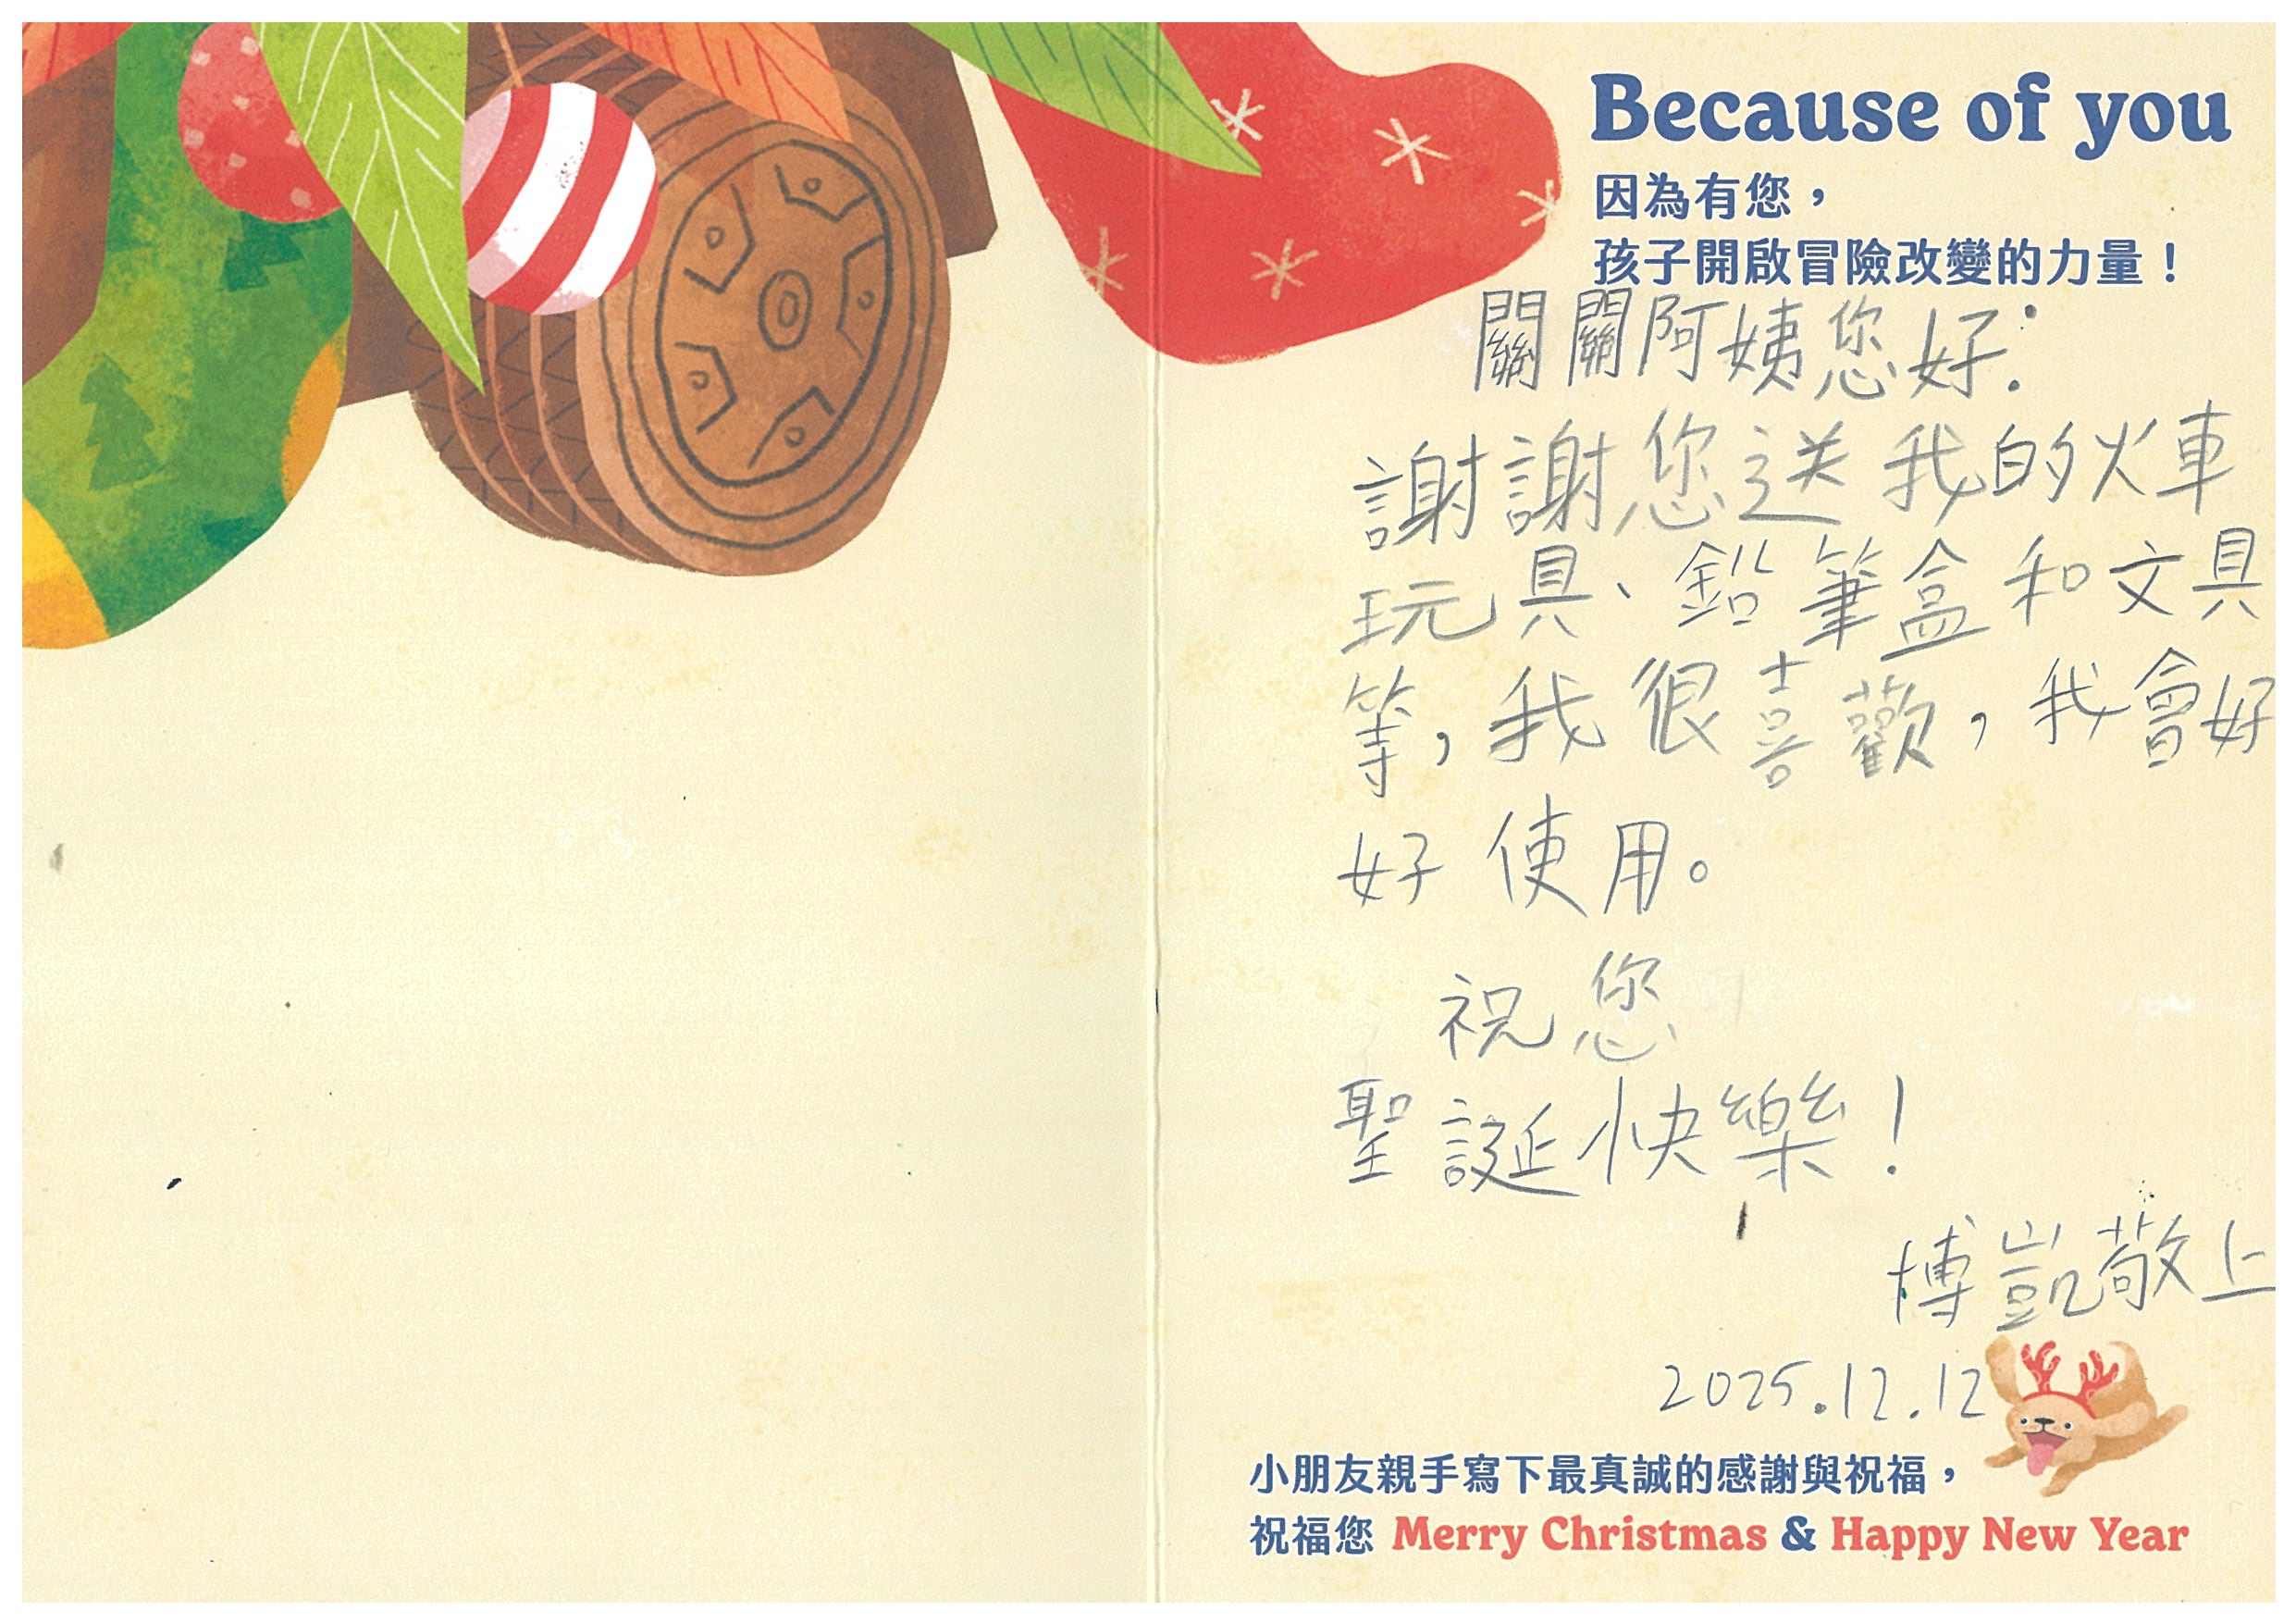 Because of you
因為有您，
孩子開啟冒險改變的力量！
關關阿姨您好：
謝謝您送我的火車
玩具、鉛筆盒和文具
等，我很喜歡，我會好
好使用。
祝您
聖誕快樂！
博凱敬上
2025.12.12
小朋友親手寫下最真誠的感謝與祝福，
祝福您 Merry Christmas & Happy New Year